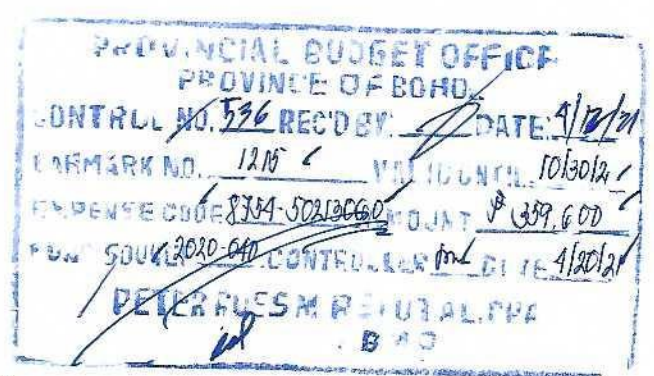 PROVINCIAL BUDGET OFFICE
PROVINCE OF BOHOL
CONTROL NO. 536 REC'D BY: DATE: 4/
EARMARK NO. 1215 VALID UNTIL 10/30/21
EXPENSE CODE 8754-50213060 AMOUNT ₱ 359,600
FUND SOURCE 2020-040 CONTROLLER DATE 4/20/21
PETER ROSS M. CPA